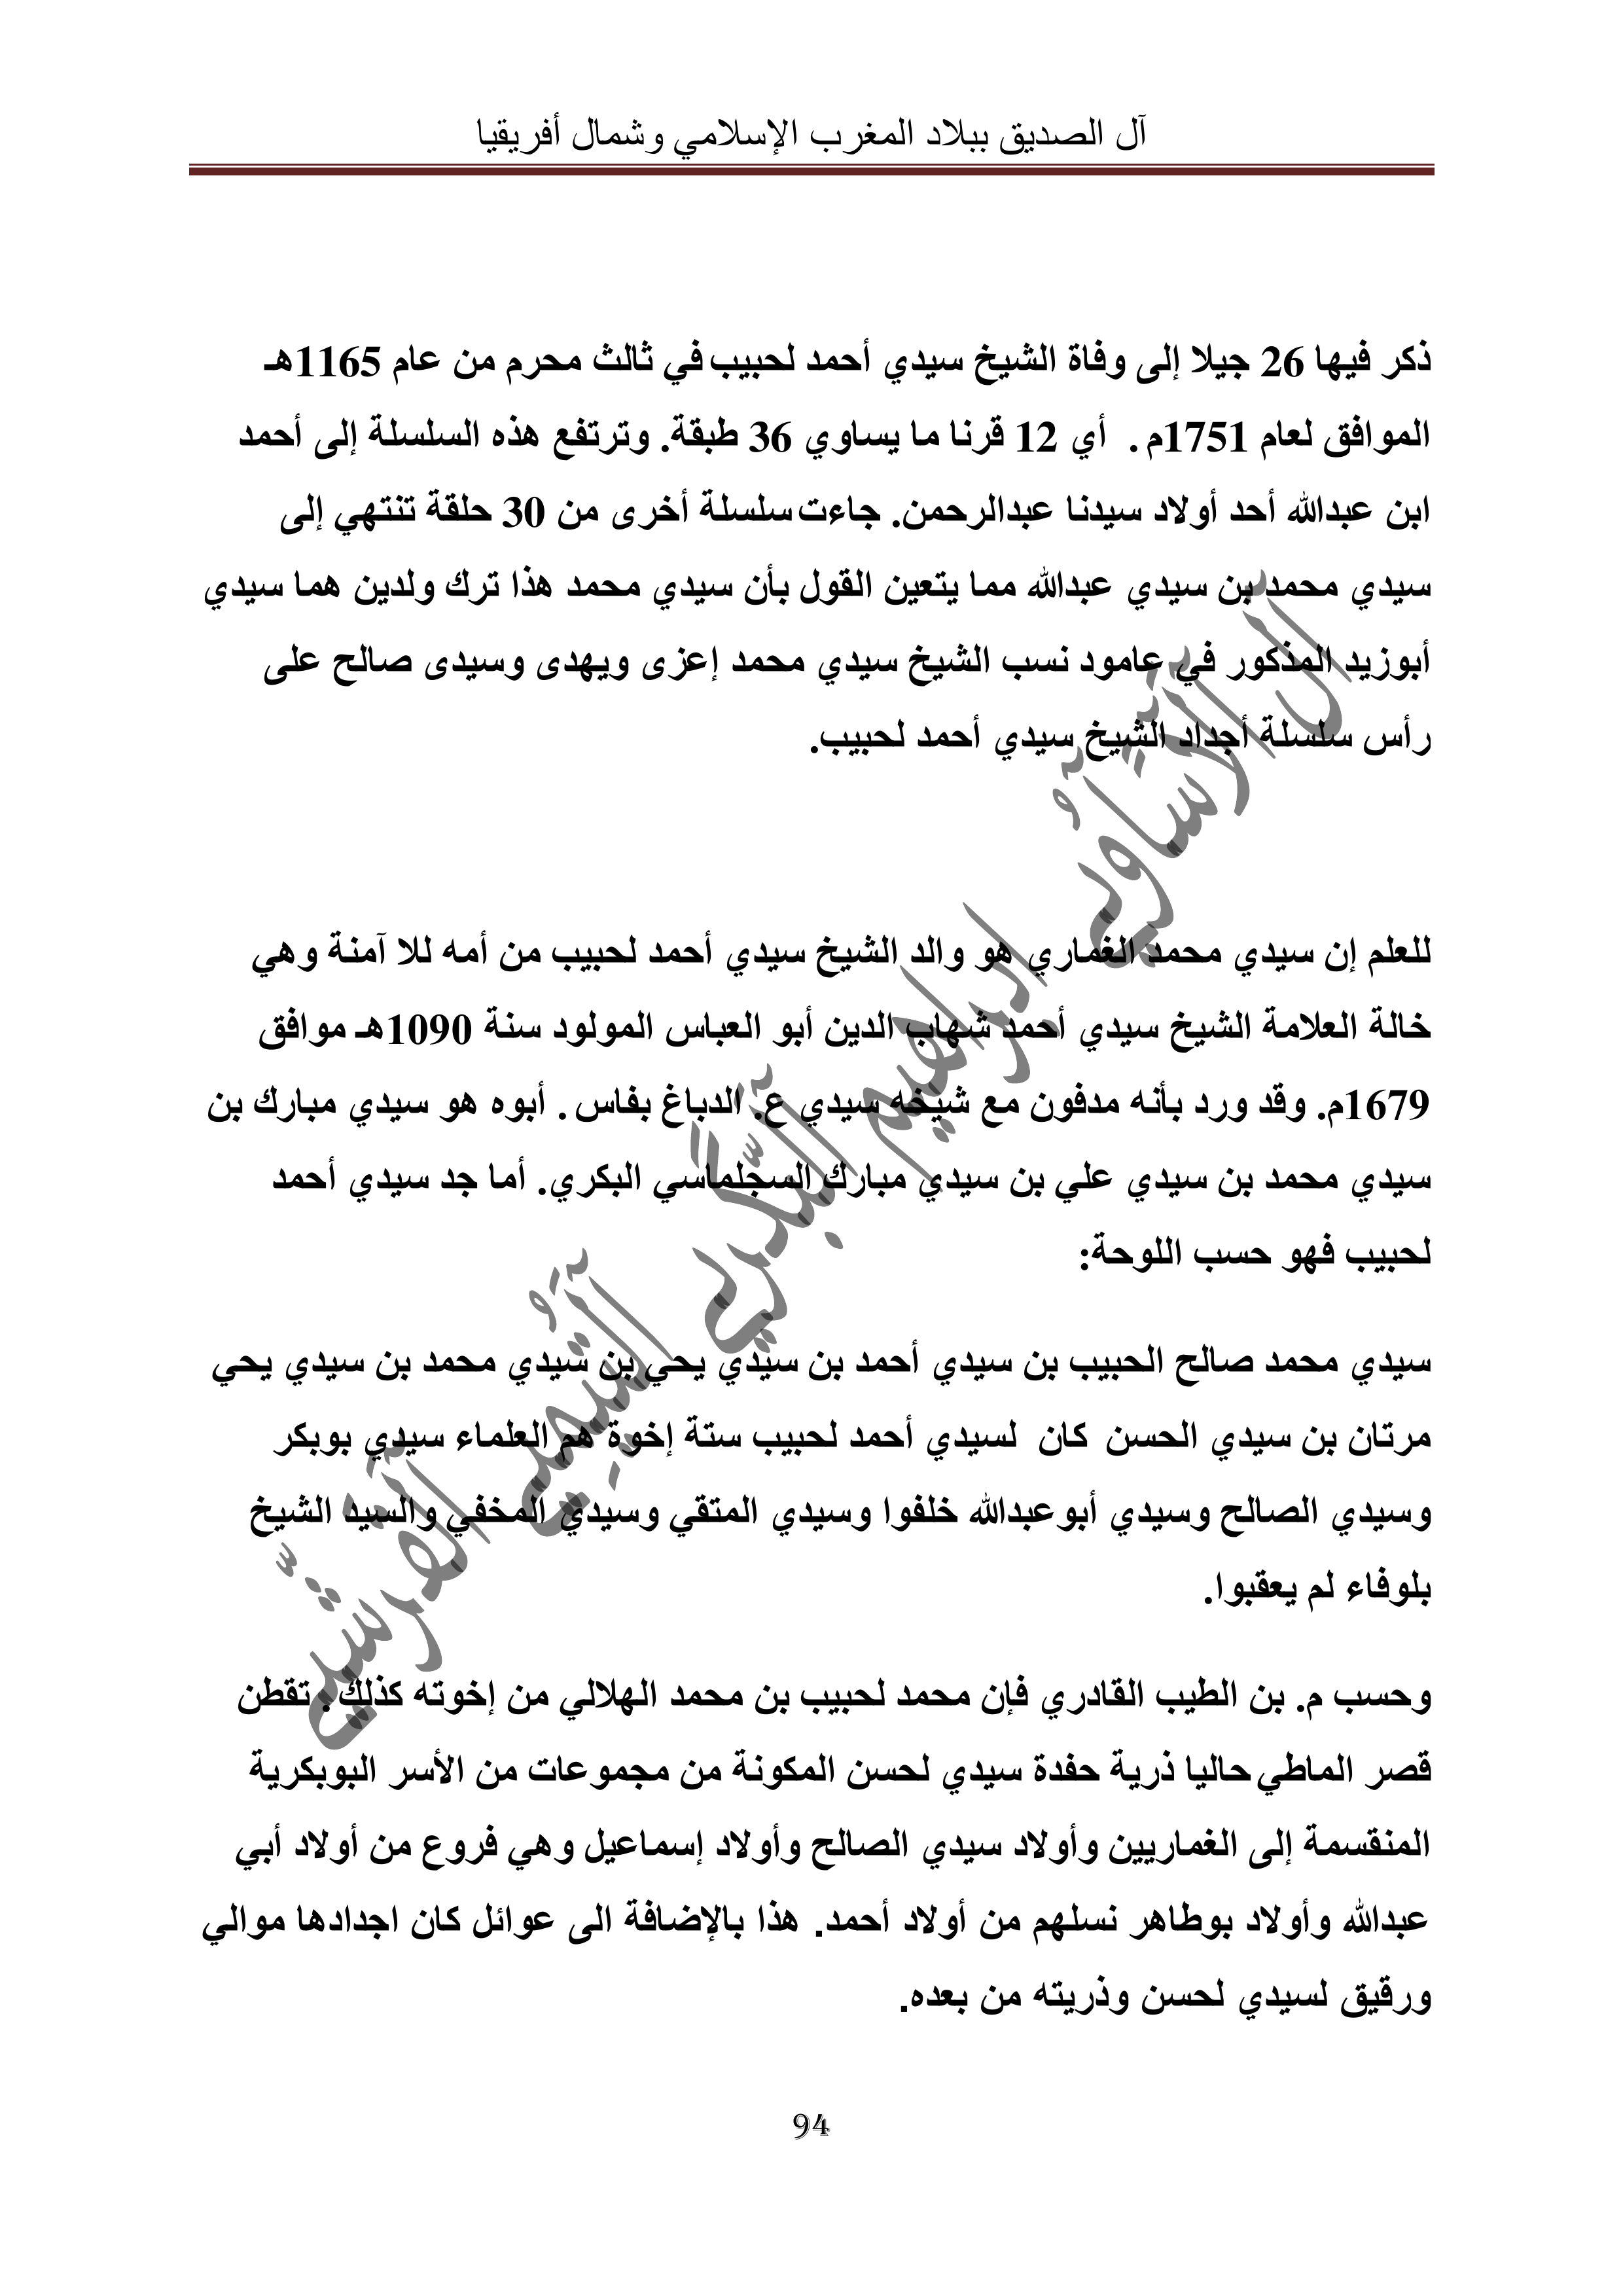 آل الصديق ببلاد المغرب الإسلامي وشمال أفريقيا
ذكر فيها 26 جيلا إلى وفاة الشيخ سيدي أحمد لحبيب في ثالث محرم من عام 1165هـ
الموافق لعام 1751م . أي 12 قرنا ما يساوي 36 طبقة. وترتفع هذه السلسلة إلى أحمد
ابن عبدالله أحد أولاد سيدنا عبدالرحمن. جاءت سلسلة أخرى من 30 حلقة تنتهي إلى
سيدي محمد بن سيدي عبدالله مما يتعين القول بأن سيدي محمد هذا ترك ولدين هما سيدي
أبوزيد المذكور في عامود نسب الشيخ سيدي محمد إعزى ويهدى وسيدى صالح على
رأس سلسلة أجداد الشيخ سيدي أحمد لحبيب.
للعلم إن سيدي محمد الغماري هو والد الشيخ سيدي أحمد لحبيب من أمه للا آمنة وهي
خالة العلامة الشيخ سيدي أحمد شهاب الدين أبو العباس المولود سنة 1090هـ موافق
1679م. وقد ورد بأنه مدفون مع شيخه سيدي ع. الدباغ بفاس . أبوه هو سيدي مبارك بن
سيدي محمد بن سيدي علي بن سيدي مبارك السجلماسي البكري. أما جد سيدي أحمد
لحبيب فهو حسب اللوحة:
سيدي محمد صالح الحبيب بن سيدي أحمد بن سيدي يحي بن سيدي محمد بن سيدي يحي
مرتان بن سيدي الحسن كان لسيدي أحمد لحبيب ستة إخوة هم العلماء سيدي بوبكر
وسيدي الصالح وسيدي أبوعبدالله خلفوا وسيدي المتقي وسيدي المخفي والسيد الشيخ
بلوفاء لم يعقبوا.
وحسب م. بن الطيب القادري فإن محمد لحبيب بن محمد الهلالي من إخوته كذلك . تقطن
قصر الماطي حاليا ذرية حفدة سيدي لحسن المكونة من مجموعات من الأسر البوبكرية
المنقسمة إلى الغماريين وأولاد سيدي الصالح وأولاد إسماعيل وهي فروع من أولاد أبي
عبدالله وأولاد بوطاهر نسلهم من أولاد أحمد. هذا بالإضافة الى عوائل كان اجدادها موالي
ورقيق لسيدي لحسن وذريته من بعده.
94